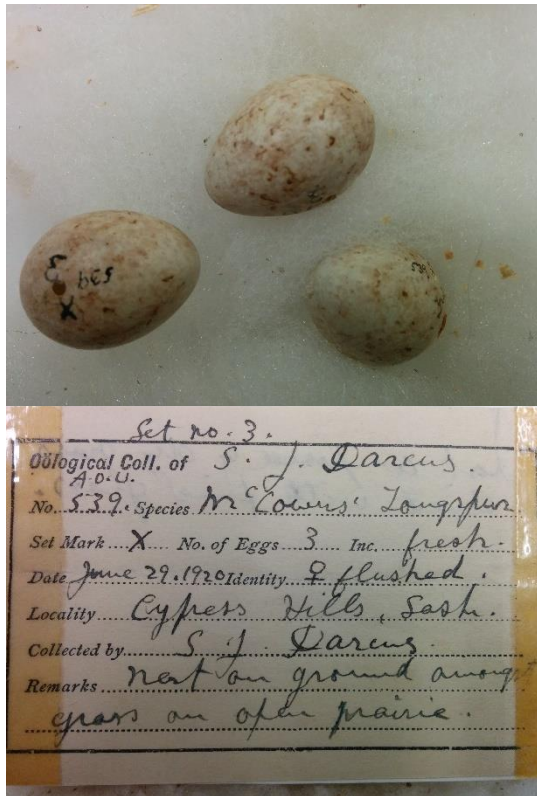 3
539
X
Set no. 3.
Oölogical Coll. of S. J. Darcus.
A.O.U.
No. 539. Species McCowns' Longspur
Set Mark X No. of Eggs 3 Inc. fresh.
Date June 29. 1920 Identity ♀ flushed.
Locality Cypress Hills, Sask.
Collected by S J. Darcus.
Remarks nest on ground amongst
grass on open prairie.